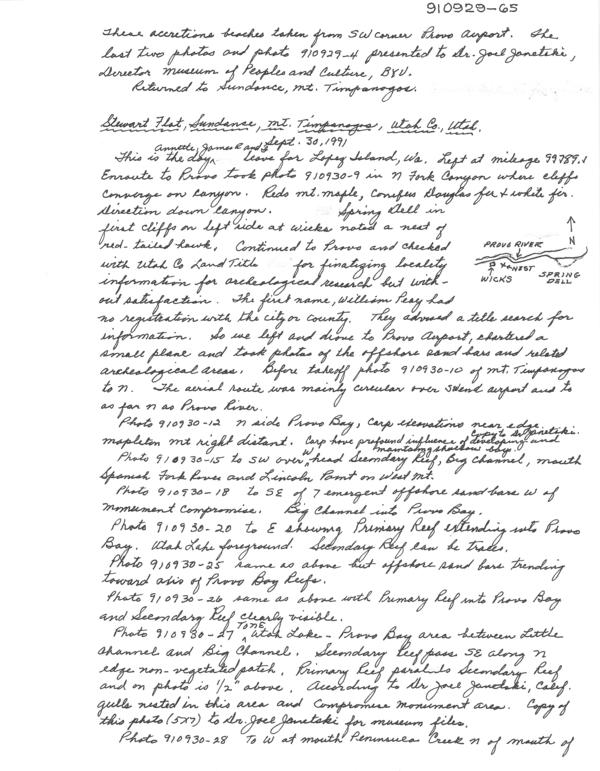 910929-65
These accretions beaches taken from SW corner Provo Airport. The
last two photos and photo 910929-4 presented to Dr. Joel Janetski,
Director Museum of Peoples and Culture, BYU.
Returned to Sundance, Mt. Timpanogos.
Stewart Flat, Sundance, Mt. Timpanogos, Utah Co., Utah.
Sept. 30, 1991
Annette, James R and I
This is the day leave for Lopez Island, Wa. Left at mileage 99789.1
Enroute to Provo took photo 910930-9 in N Fork Canyon where cliffs
converge on canyon. Reds mt. maple, Conifers Douglas fir & white fir.
Direction down canyon. Spring Dell in
first cliffs on left side at Wicks noted a nest of
red-tailed hawk. Continued to Provo and checked
with Utah Co Land Title for finalizing locality
information for archeological research but with-
out satisfaction. The first name, William Peay had
no registration with the city or county. They advised a title search for
information. So we left and drove to Provo Airport, chartered a
small plane and took photos of the offshore sand bars and related
archeological areas. Before takeoff photo 910930-10 of Mt. Timpanogos
to N. The aerial route was mainly circular over SW end airport and to
as far N as Provo River.
PROVO RIVER
N
NEST
WICKS
SPRING
DELL
Photo 910930-12 N side Provo Bay, Carp excavations near edge.
Copy to Dr. Janetski.
Mapleton Mt right distant. Carp have profound influence of developing and
maintaining shallow bay.
Photo 910930-15 to SW over head Secondary Reef, Big Channel, mouth
Spanish Fork River and Lincoln Point on West Mt.
Photo 910930-18 to SE of 7 emergent offshore sand bars W of
monument Compromise. Big Channel into Provo Bay.
Photo 910930-20 to E showing Primary Reef extending into Provo
Bay. Utah Lake foreground. Secondary Reef can be traces.
Photo 910930-25 same as above but offshore sand bars trending
toward axis of Provo Bay Reefs.
Photo 910930-26 same as above with Primary Reef into Provo Bay
and Secondary Reef clearly visible.
Photo 910930-27 TO NE Utah Lake - Provo Bay area between Little
Channel and Big Channel. Secondary Reef pass SE along N
edge non-vegetated patch. Primary Reef parallels Secondary Reef
and on photo is 1/2" above. According to Dr Joel Janetski, Calif.
gulls nested in this area and Compromise monument area. Copy of
this photo (5x7) to Dr. Joel Janetski for museum files.
Photo 910930-28 To W at mouth Peninsula Creek N of mouth of